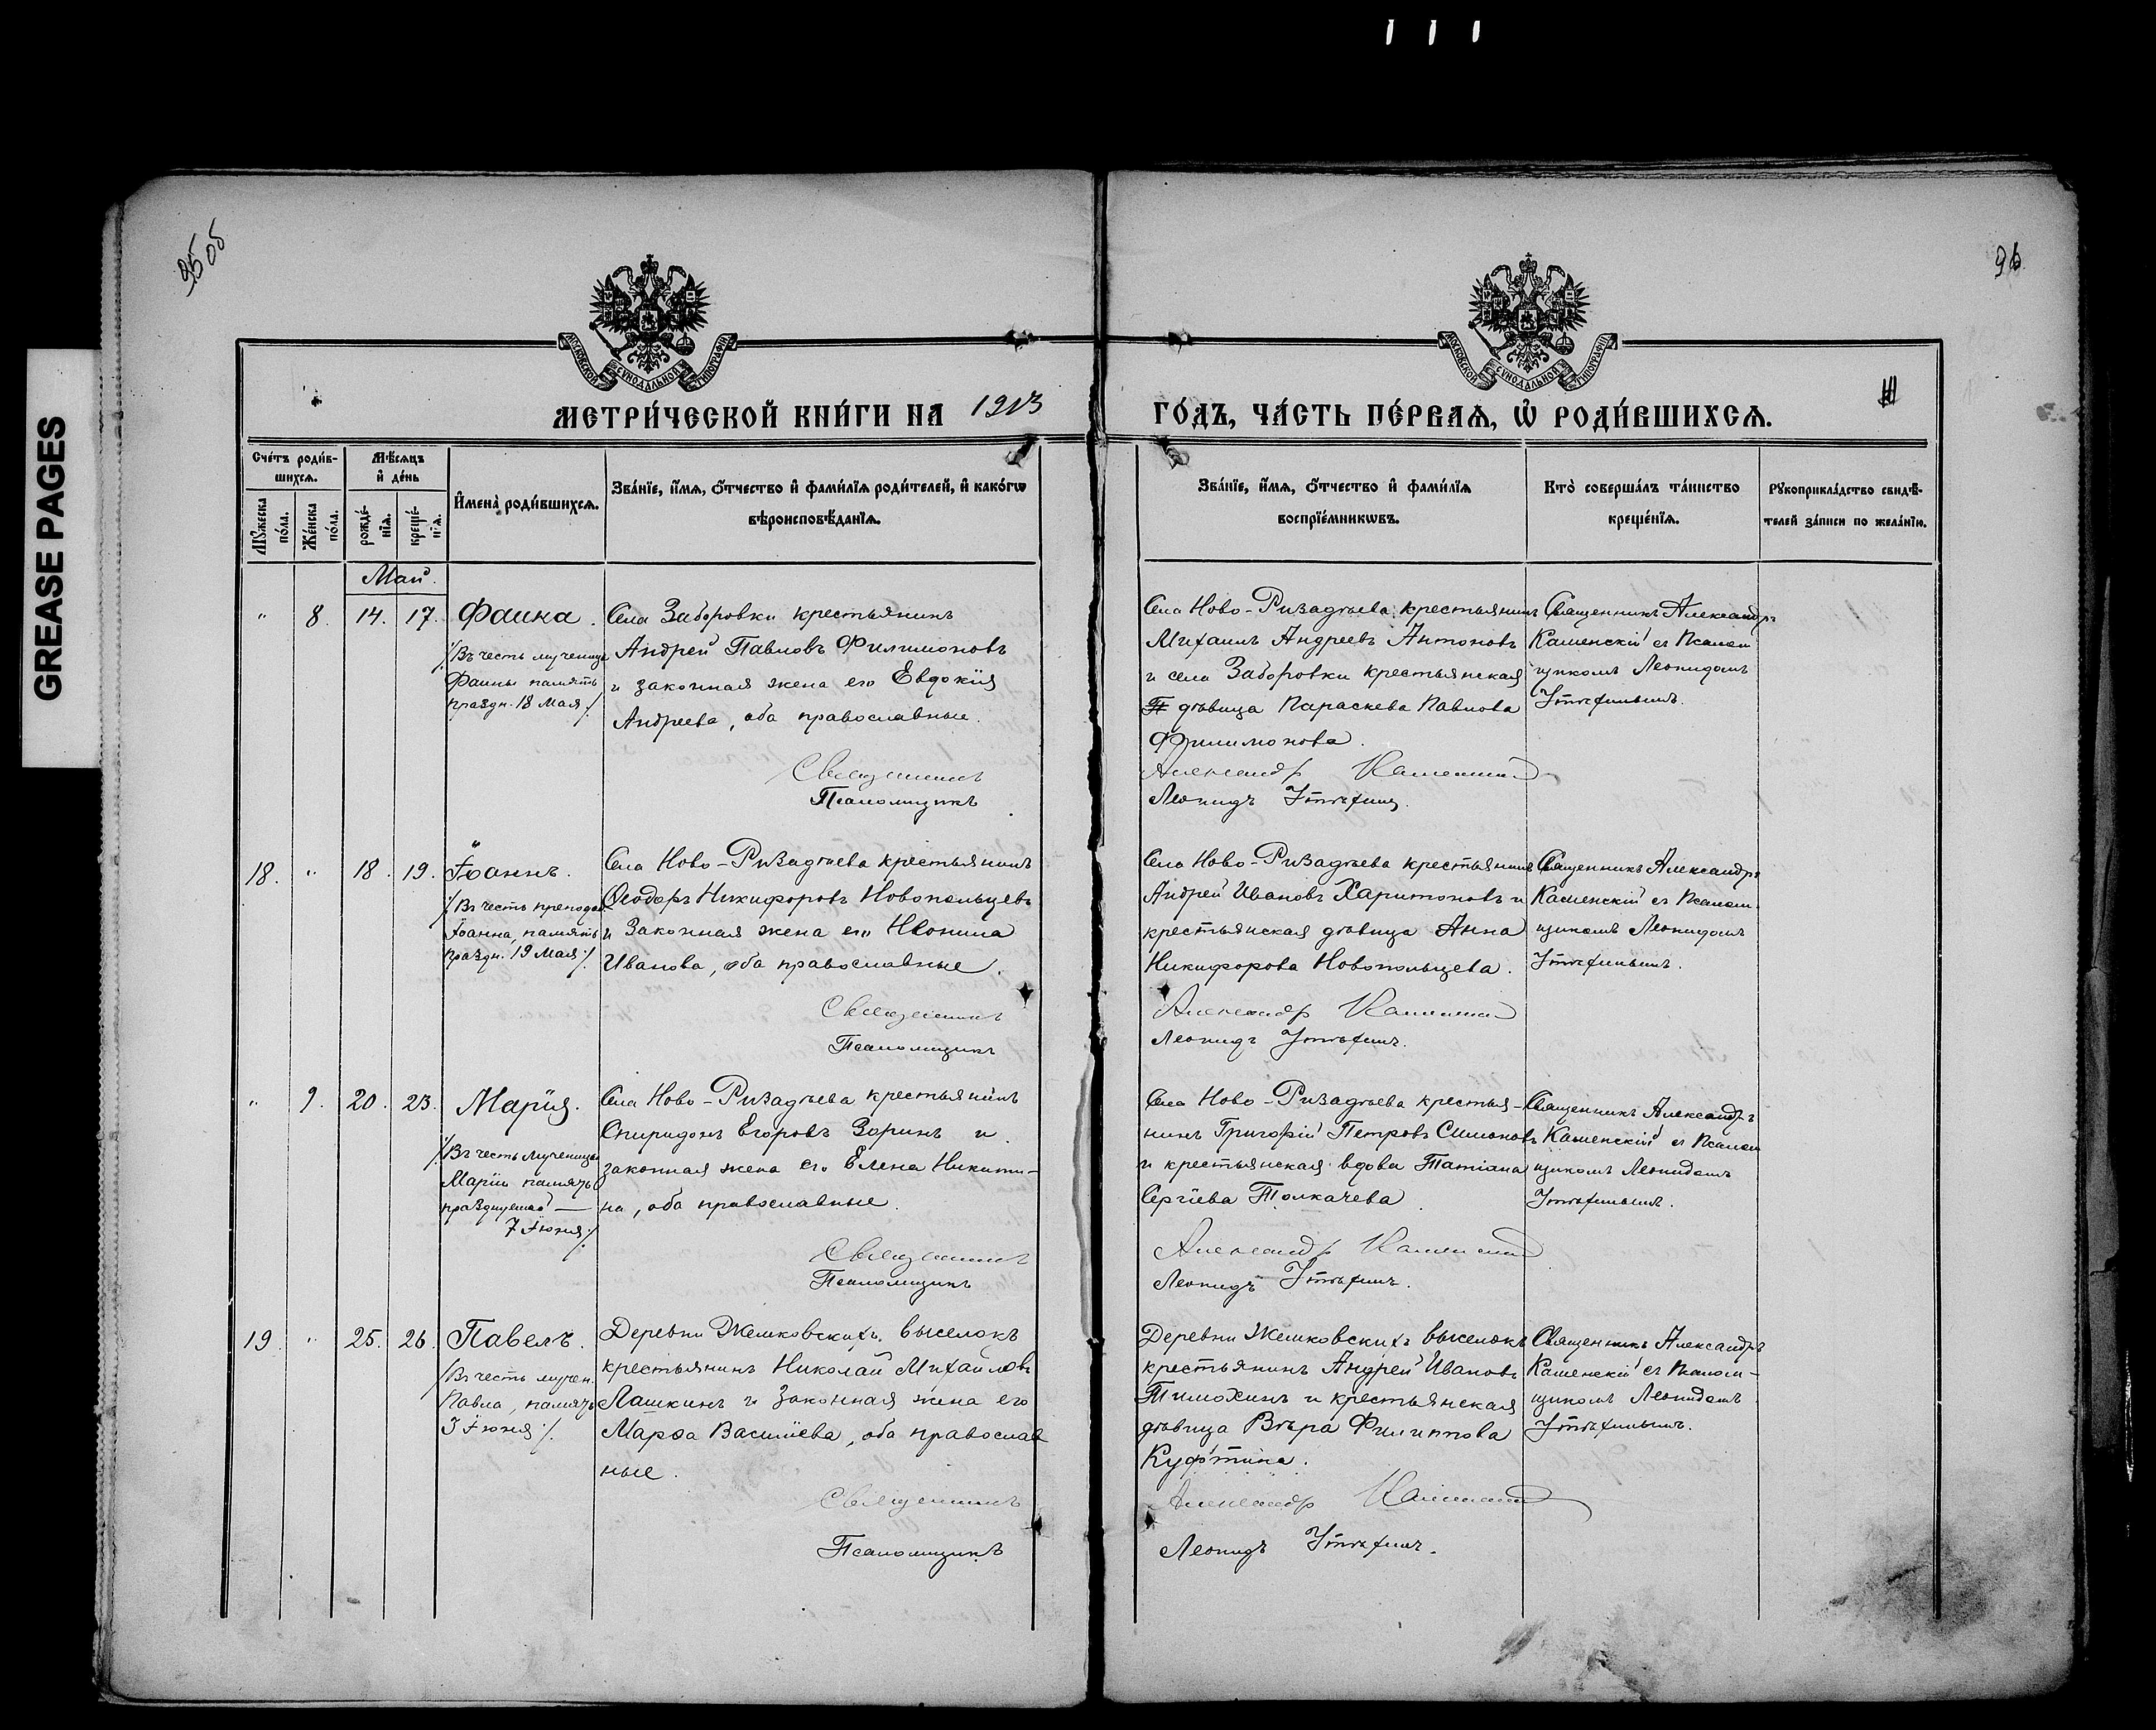 GREASE PAGES
95 об
96
МОСКОВСКОЙ СѴНОДАЛЬНОЙ ТИПОГРАФІИ
МОСКОВСКОЙ СѴНОДАЛЬНОЙ ТИПОГРАФІИ
МЕТРИ́ЧЕСКОЙ КНИ́ГИ НА 1913
ГО́ДЪ, ЧА́СТЬ ПЕ́РВАѦ, Ѡ҆ РОДИ́ВШИХСѦ.
Сче́тъ роди́в-
шихсѧ.
Мꙋ́жеска
по́ла.
Же́нска
по́ла.
Мѣ́сѧцъ
и҆ де́нь
рожде́-
нїѧ.
креще́-
нїѧ.
И҆мена̀ роди́вшихсѧ.
Зва́нїе, и҆́мѧ, ѻ҆́тчество и҆ фами́лїѧ роди́телей, и҆ како́гѡ
вѣроисповѣ́данїѧ.
Зва́нїе, и҆́мѧ, ѻ҆́тчество и҆ фами́лїѧ
воспрїе́мникѡвъ.
Кто̀ соверша́лъ та́инство
креще́нїѧ.
Рꙋкоприкла́дство свидѣ́-
телей за́писи по жела́нїю.
Май.
" 8. 14. 17. Фаина.
/Въ честь мученицы
Фаины память
праздн. 18 Мая./
Села Заборовки крестьянинъ
Андрей Павловъ Филимоновъ
и законная жена его Евдокія
Андреева, оба православные.
Священникъ
Псаломщикъ
Села Ново-Ризадѣева крестьянинъ
Михаилъ Андреевъ Антоновъ
и села Заборовки крестьянская
дѣвица Параскева Павлова
Филимонова.
Александръ Каменскій
Леонидъ
Священникъ Александръ
Каменскій съ Псалом
щикомъ Леонидомъ
18. " 18. 19. Іоаннъ.
/Въ честь преподоб.
Іоанна, память
праздн. 19 Мая./
Села Ново-Ризадѣева крестьянинъ
Ѳеодоръ Никифоровъ Новопольцевъ
и Законная жена его Неонила
Иванова, оба православные.
Священникъ
Псаломщикъ
Села Ново-Ризадѣева крестьянинъ
Андрей Ивановъ Харитоновъ и
крестьянская дѣвица Анна
Никифорова Новопольцева.
Александръ Каменскій
Леонидъ
Священникъ Александръ
Каменскій съ Псалом-
щикомъ Леонидомъ
" 9. 20. 23. Марія.
/Въ честь Мученицы
Маріи память
празднуемой —
7 Іюня./
Села Ново-Ризадѣева крестьянинъ
Спиридонъ Егоровъ Зоринъ и
законная жена его Елена Никити-
на, оба православные.
Священникъ
Псаломщикъ
Села Ново-Ризадѣева крестья-
нинъ Григорій Петровъ Симоновъ
и крестьянская вдова Татіана
Сергіева Толкачева.
Александръ Каменскій
Леонидъ
Священникъ Александръ
Каменскій съ Псалом
щикомъ Леонидомъ
19. " 25. 26. Павелъ.
/Въ честь мучен.
Павла, память
3 Іюня/.
Деревни Жемковскихъ выселокъ
крестьянинъ Николай Михайловъ
Лашкинъ и Законная жена его
Марѳа Василіева, оба православ
ные.
Священникъ
Псаломщикъ
Деревни Жемковскихъ выселокъ
крестьянинъ Андрей Ивановъ
Тимохинъ и крестьянская
дѣвица Вѣра Филиппова
Куфтина.
Александръ Каменскій
Леонидъ
Священникъ Александръ
Каменскій съ Псалом-
щикомъ Леонидомъ